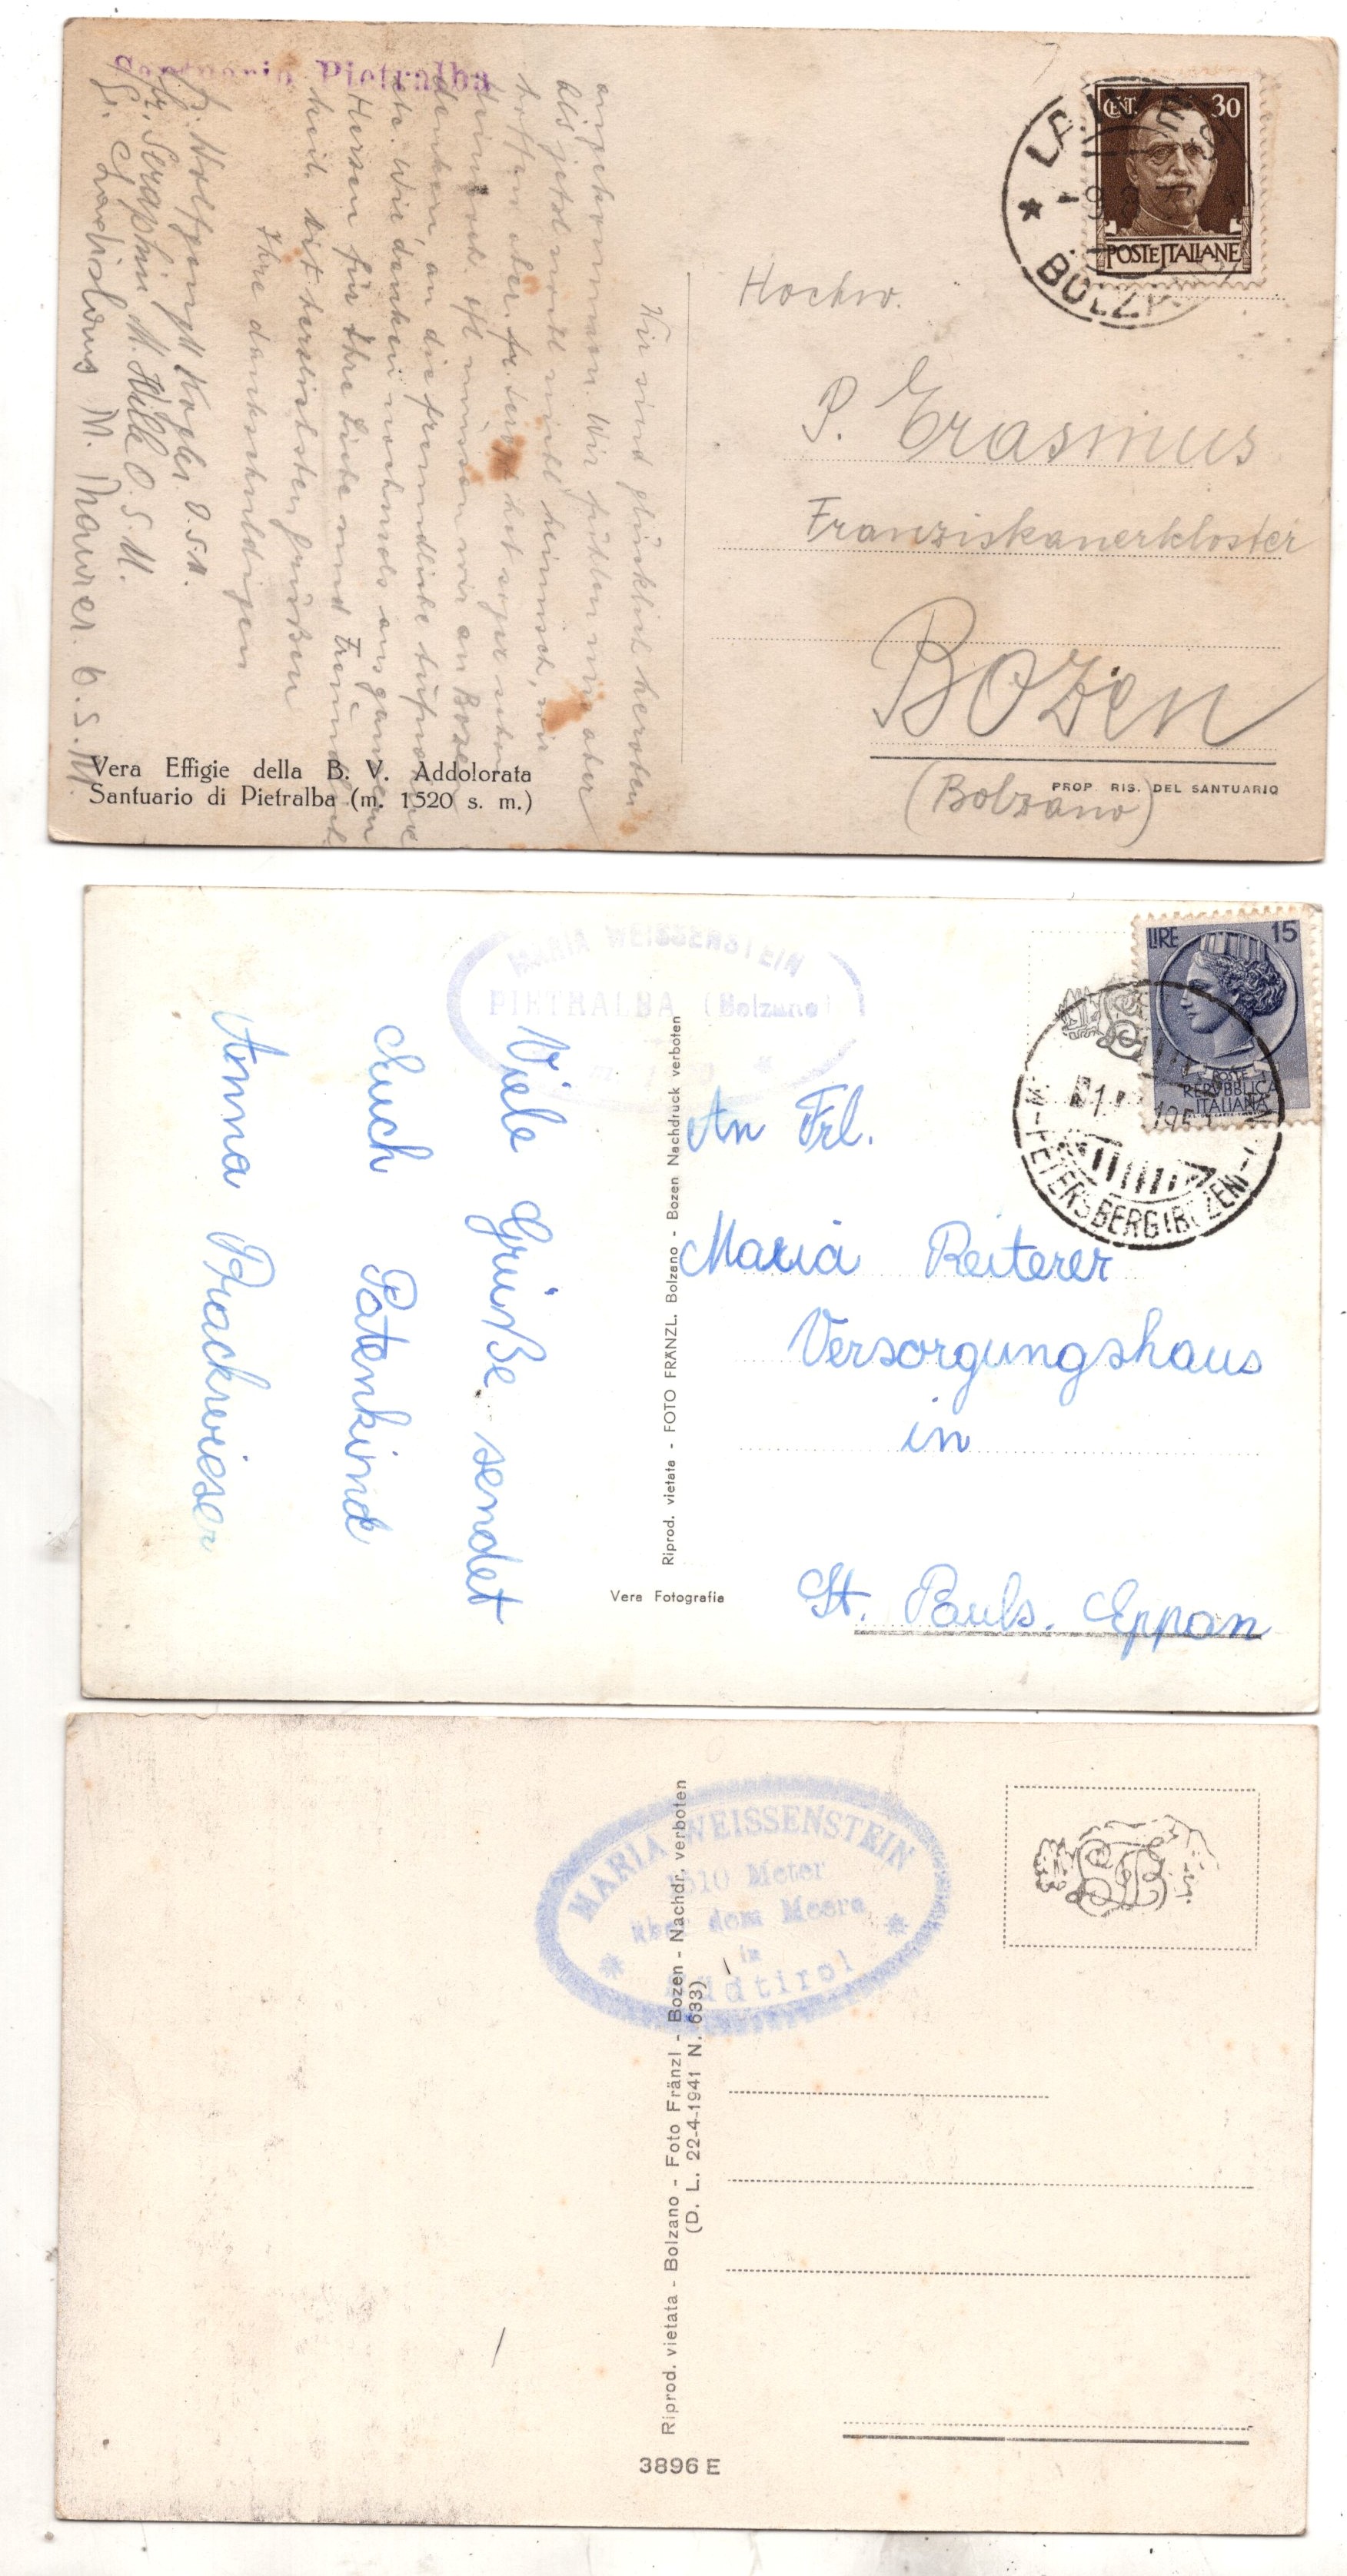 Santuario Pietralba
Wir sind glücklich heroben
angekommen. Wir fühlen uns aber
bis jetzt noch nicht heimisch, wir
hoffen aber. fr. hat sogar schon
Heimweh oft müssen wir an Bozen
denken, an die freundliche Aufnahme
etc. Wir danken nochmals aus ganzem
Herzen für Ihre Liebe und Freundlich
keit. Mit herzlichsten Grüßen
Ihre dankschuldigen
fr. Wolfgang M Kogler. O.S.M.
fr. Seraphin M. Wille O.S.M.
fr. Ladislaus M. Thawier. O.S.M.
Vera Effigie della B. V. Addolorata
Santuario di Pietralba (m. 1520 s. m.)
CENT. 30
POSTE ITALIANE
Hochw.
P. Erasmus
Franziskanerkloster
Bozen
(Bolzano)
PROP. RIS. DEL SANTUARIO
MARIA WEISSENSTEIN
PIETRALBA (Bolzano)
Viele Grüße sendet
Euch Patenkind
Anna Prackwieser
Riprod. vietata - FOTO FRÄNZL. Bolzano - Bozen Nachdruck verboten
Vera Fotografia
LIRE 15
POSTE
REPVBBLICA
ITALIANA
PETERSBERG (BOZEN)
An Frl.
Maria Reiterer
Versorgungshaus
in
St. Pauls. Eppan
MARIA WEISSENSTEIN
1510 Meter
über dem Meere
in
Südtirol
Riprod. vietata - Bolzano - Foto Fränzl - Bozen - Nachdr. verboten
(D. L. 22-4-1941 N. 633)
3896 E